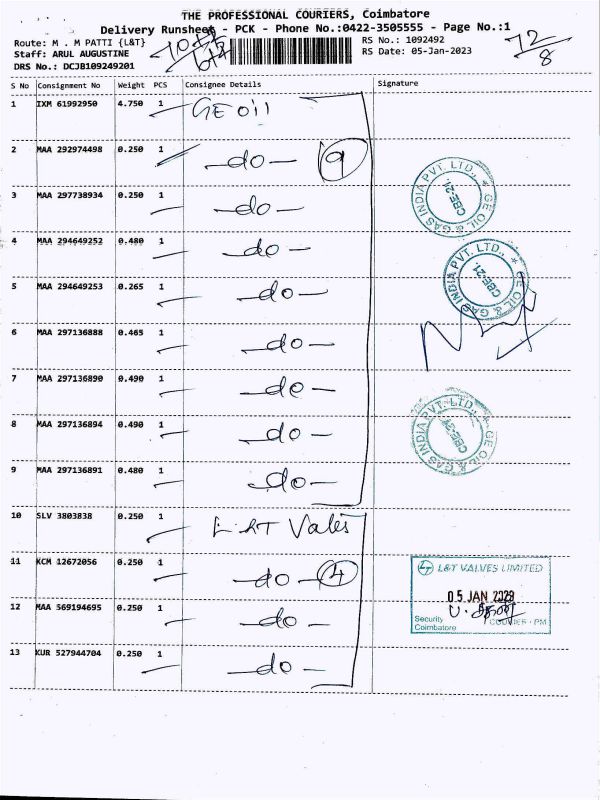 THE PROFESSIONAL COURIERS, Coimbatore
Delivery Runsheet - PCK - Phone No.:0422-3505555 - Page No.:1
Route: M . M PATTI {L&T}
RS No.: 1092492
Staff: ARUL AUGUSTINE
RS Date: 05-Jan-2023
DRS No.: DCJB109249201
72/8
S No Consignment No Weight PCS Consignee Details Signature
1 IXM 61992950 4.750 1 GE oil
2 MAA 292974498 0.250 1 -do- 9
3 MAA 297738934 0.250 1 -do-
4 MAA 294649252 0.480 1 -do-
5 MAA 294649253 0.265 1 -do-
6 MAA 297136888 0.465 1 -do-
7 MAA 297136890 0.490 1 -do-
8 MAA 297136894 0.490 1 -do-
9 MAA 297136891 0.480 1 -do-
10 SLV 3803838 0.250 1 L&T Vales
11 KCM 12672056 0.250 1 -do- 4
12 MAA 569194695 0.250 1 -do-
13 KUR 527944704 0.250 1 -do-
GE OIL & GAS INDIA PVT. LTD.,
CBE-21.
GE OIL & GAS INDIA PVT. LTD.,
CBE-21.
GE OIL & GAS INDIA PVT. LTD.,
CBE-21.
L&T VALVES LIMITED
05 JAN 2023
Security
COURIER - PM
Coimbatore